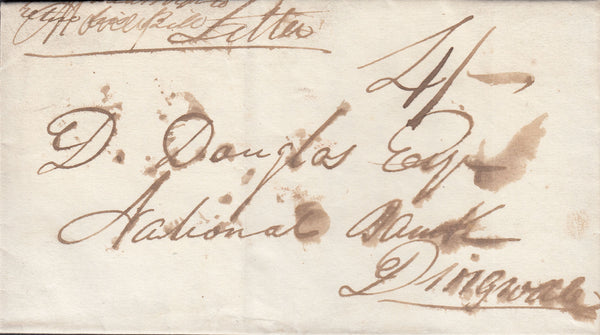 Letter
4/-
D. Douglas Esqr
National Bank
Dingwall